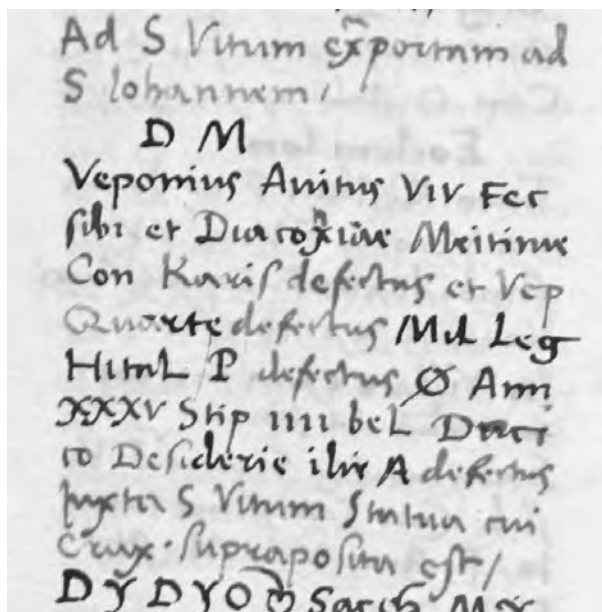 Ad S Vitum ex̃portam ad
S Iohannem /
D M
Veponius Auitus VIV Fec
sibi et Meitime
Con Karis defectus et Vep
Quarte defectus Mil Leg
P defectus Ø Ann
XXXV Stip IIII bel Daci
co Desiderie ilie A defectus
Juxta S Vitum Statua cui
Crux supraposita est /